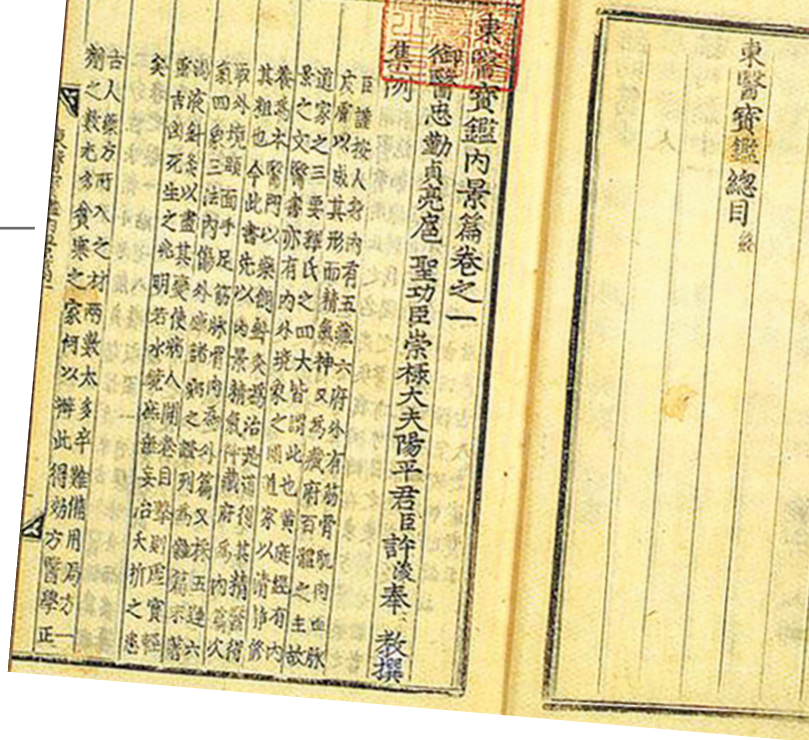 東醫寶鑑總目終
東醫寶鑑內景篇卷之一
御醫忠勤貞亮扈聖功臣崇祿大夫陽平君臣許浚奉教撰
集例
臣謹按人身內有五臟六府外有筋骨肌肉血脈
皮膚以成其形而精氣神又爲臟府百體之主故
道家之三要釋氏之四大皆謂此也黃庭經有內
景之文醫書亦有內外境象之圖道家以淸靜修
養爲本醫門以藥餌鍼灸爲治是道得其精醫得
其粗也今此書先以內景精氣神臟府爲內篇次
取外境頭面手足筋脈骨肉爲外篇又採五運六
氣四象三法內傷外感諸病之證列爲雜篇末著
湯液針灸以盡其變使病人開卷目擊則虛實輕
重吉凶死生之兆明若水鏡庶無妄治夭折之患
矣
古人藥方所入之材兩數太多卒難備用局方一
劑之數尤多貧寒之家何以辦此得効方醫學正